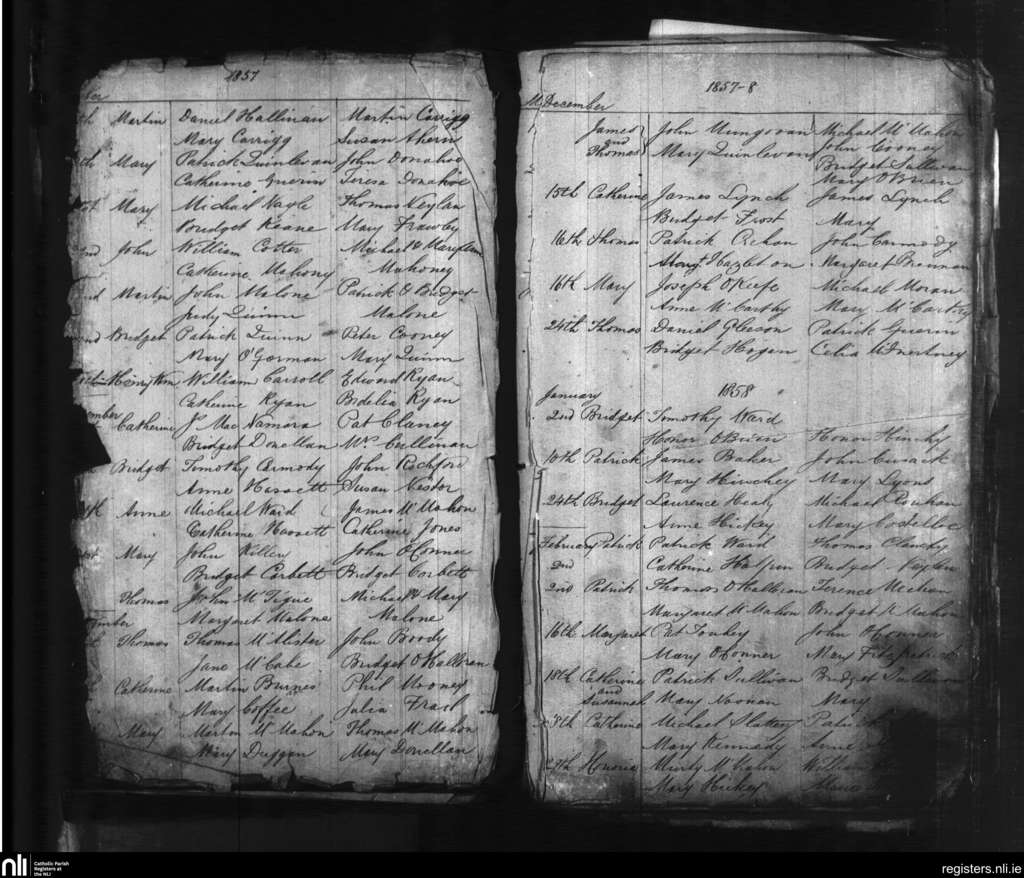 1857
Martin Daniel Hallinan Martin Carrigg
Mary Carrigg Susan Ahern
th Mary Patrick Quinlevan John Donahoe
Catherine Guerin Teresa Donahoe
Mary Michael Nagle Thomas Neylan
Bridget Keane Mary Frawley
2nd John William Cotter Michael & Maryann
Catherine Mahony Mahoney
Martin John Malone Patrick & Bridget
Judy Quinn Malone
Bridget Patrick Quinn Peter Cooney
Mary O'Gorman Mary Quinn
William Carroll Edward Ryan
Catherine Ryan Bidelia Ryan
ember
Catherine J. MacNamara Pat Clancy
Bridget Donellan Mrs Cullinan
Bridget Timothy Carmody John Rochford
Anne Hassett Susan Nestor
Anne Michael Ward James McMahon
Catherine Hassett Catherine Jones
Mary John Killen John O'Connor
Bridget Corbett Bridget Corbett
Thomas John McTigue Michael & Mary
Margaret Malone Malone
ember
Thomas Thomas McAlister John Boody
Jane McCabe Bridget O'Halloran
Catherine Martin Burnes Phil Mooney
Mary Coffee Julia Frost
Mary Morton McMahon Thomas McMahon
Mary Duggan Mary Donellan
1857-8
December
James John Mungovan Michael McMahon
and John Cooney
Thomas Mary Quinlevan Bridget Sullivan
Mary O'Brien
15th Catherine James Lynch James Lynch
Bridget Frost Mary
16th Thomas Patrick Crehan John Carmody
Hazleton Margaret Brennan
16th Mary Joseph O'Keefe Michael Moran
Anne McCarthy Mary McCarthy
24th Thomas Daniel Gleeson Patrick Guerin
Bridget Hogan Celia McInertney
1858
January
2nd Bridget Timothy Ward
Honor O'Brien Honor Hinchy
10th Patrick James Baker John Cusack
Mary Hinchey Mary Lyons
24th Bridget Laurence Healy Michael
Anne Hickey Mary Costelloe
February Patrick Patrick Ward Thomas Clanchy
2nd Catherine Halpin Bridget
2nd Patrick Thomas O'Halloran Terence Meehan
Margaret McMahon Bridget McMahon
16th Margaret Pat Touhey John O'Connor
Mary O'Conner Mary Fitzpatrick
18th Catherine Patrick Sullivan Bridget Sullivan
and
Susannah Mary Noonan Mary
Catherine Michael Slattery Patrick
Mary Kennedy Anne
Honoria Murty McMahon William
Mary Hickey
nli
Catholic Parish
Registers at
the NLI
registers.nli.ie